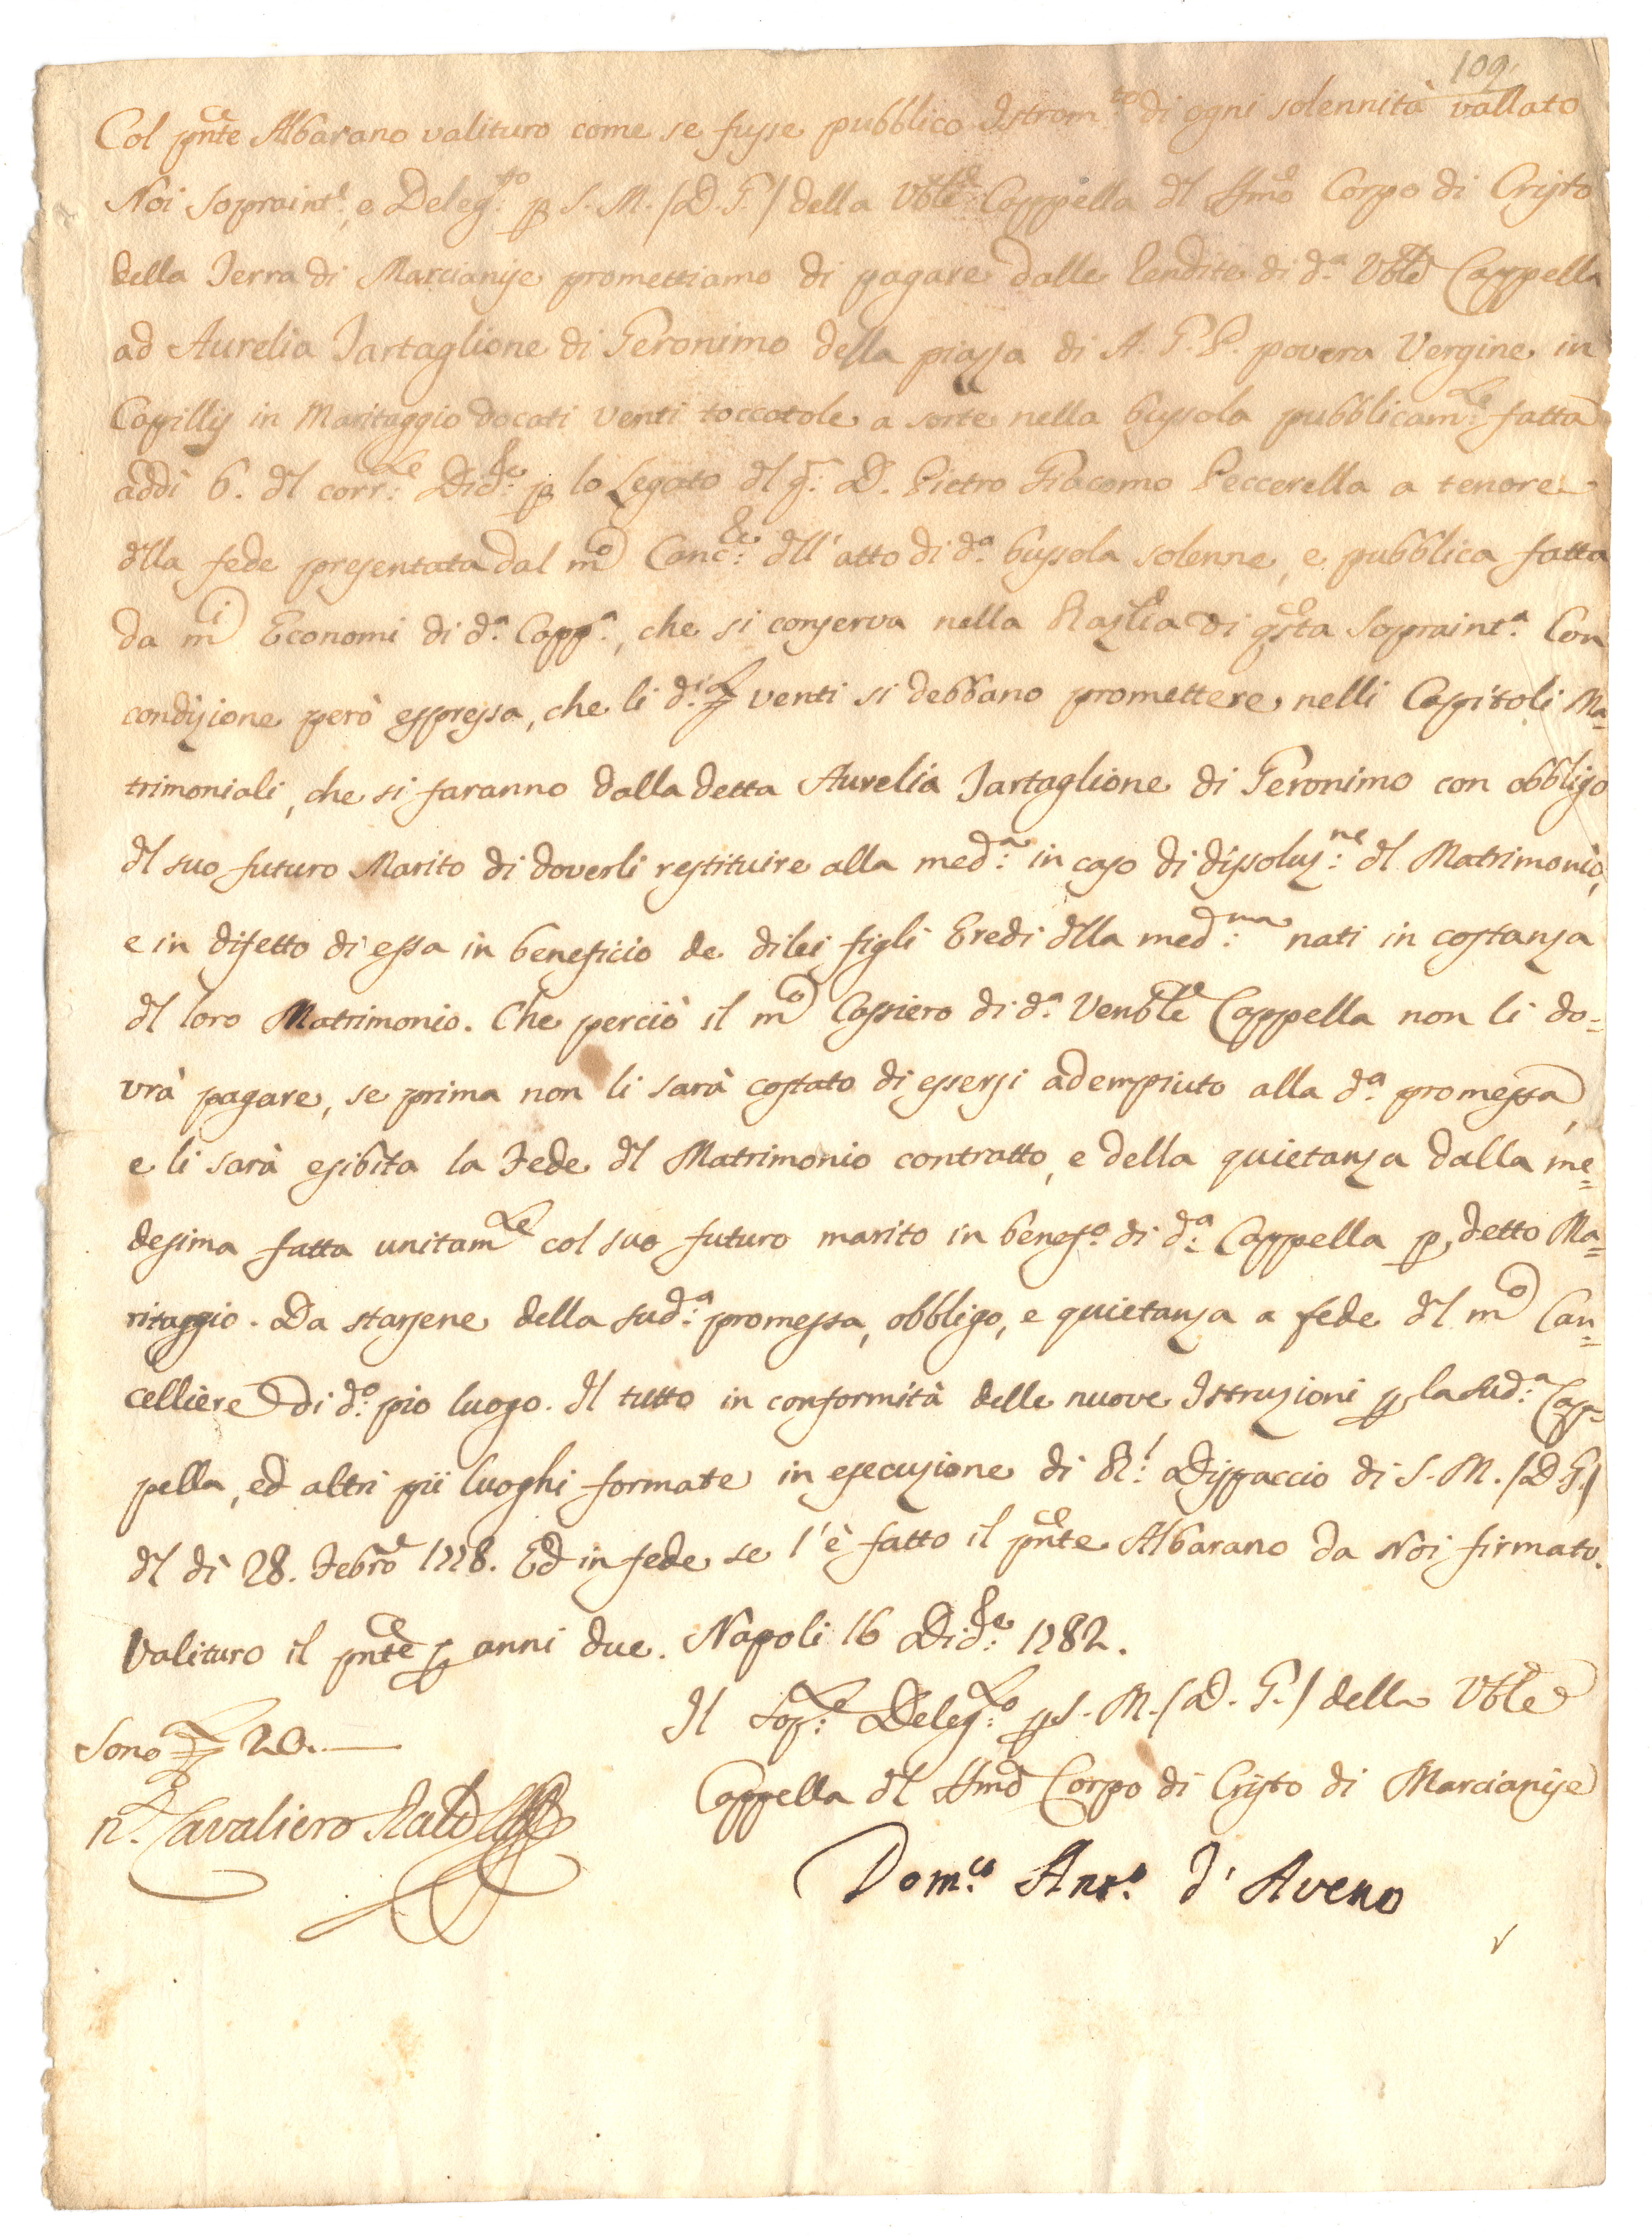 109
Col pnte Albarano valituro come se fusse pubblico Istrom.to di ogni solennità vallato
Noi Sopraint.e, e Deleg.to p S. M. (D. G.) della Vble Cappella dl Ssmo Corpo di Cristo
della Terra di Marcianise promettiamo di pagare dalle Rendite di d.a Vble Cappella
ad Aurelia Tartaglione di Geronimo della piazza di A. G. P. povera Vergine in
Capillis in Maritaggio docati venti toccatole a sorte nella bussola pubblicam.te fatta
addì 6. dl corr.te Dic.bre p lo Legato dl q.m D. Pietro Giacomo Peccerella a tenore
dlla fede presentata dal mco Canc.re dll' atto di d.a bussola solenne, e pubblica fatta
da mci Economi di d.a Capp.a, che si conserva nella di qsta Sopraint.a Con
condizione però espressa, che li d.i venti si debbano promettere nelli Capitoli Ma=
trimoniali, che si faranno dalla detta Aurelia Tartaglione di Geronimo con obbligo
dl suo futuro Marito di doverli restituire alla med.a in caso di dissoluz.ne dl Matrimonio,
e in difetto di essa in beneficio de dilei figli Eredi dlla med.ma nati in costanza
dl loro Matrimonio. Che perciò il mco Cassiero di d.a Venble Cappella non li do=
vrà pagare, se prima non li sarà costato di essersi adempiuto alla d.a promessa,
e li sarà esibita la Fede dl Matrimonio contratto, e della quietanza dalla me=
desima fatta unitam.te col suo futuro marito in benef.o di d.a Cappella p detto Ma=
ritaggio. Da starsene della sud.a promessa, obbligo, e quietanza a fede dl mco Can=
celliere di d.o pio luogo. Il tutto in conformità delle nuove Istruzioni p la sud.a Cap=
pella, ed altri pii luoghi formate in esecuzione di R.l Dispaccio di S. M. (D. G.)
dl dì 28. Febro 1778. Ed in fede se l'è fatto il pnte Albarano da Noi firmato.
Valituro il pnte p anni due. Napoli 16 Dic.bre 1782.
Il Sop.te Deleg.to p S. M. (D. G.) della Vble
Sono 20.
Cappella dl Ssmo Corpo di Cristo di Marcianise
n.r Cavaliero
Dom.co Ant.o d' Aveno